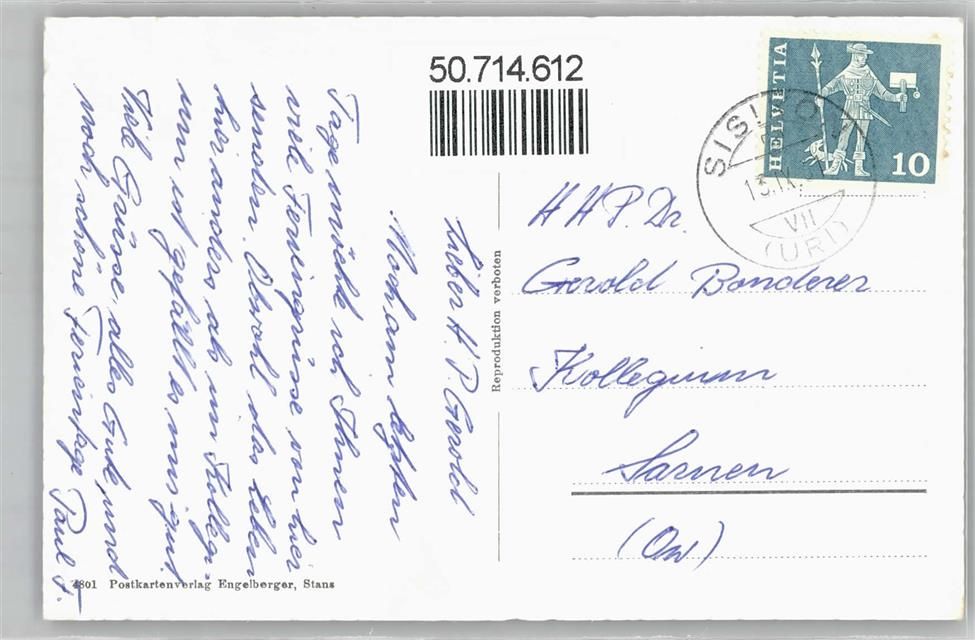 50.714.612
HELVETIA
10
SISIKON
13.IX.
VII
(URI)
Lieber H. P. Gerold
Noch am letzten
Tage möchte ich Ihnen
viele Feriengrüsse von hier
senden. Obwohl das Leben
hier anders als im Kollegi-
um ist gefällt es mir gut.
Viele Grüsse, alles Gute, und
noch schöne Ferientage Paul F.
Reproduktion verboten
HHP. Dr.
Gerold Bonderer
Kollegium
Sarnen
(Ow)
4801 Postkartenverlag Engelberger, Stans